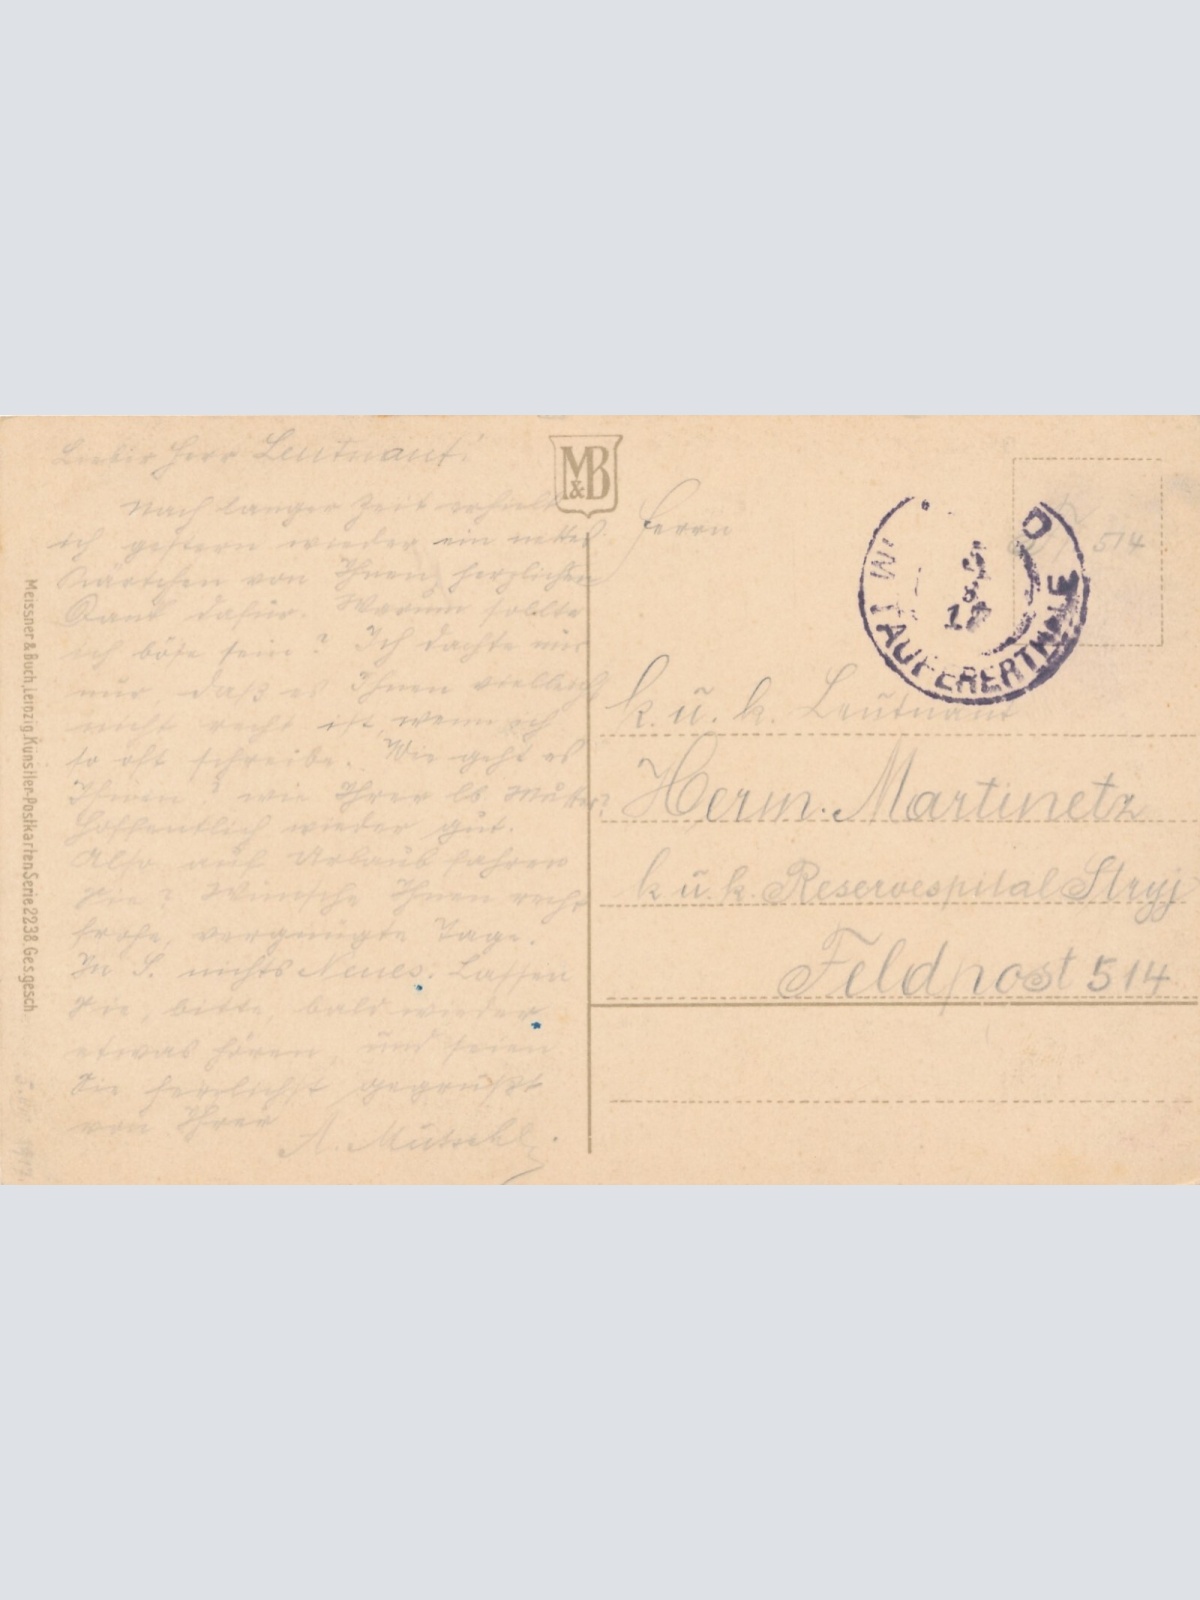 Lieber Herr Leutnant!
Nach langer Zeit erhielt
ich gestern wieder ein nettes
Kärtchen von Ihnen, herzlichen
Dank dafür. Warum sollte
ich böse sein? Ich dachte mir
nur, daß es Ihnen vielleicht
nicht recht ist, wenn ich
so oft schreibe. Wie geht es
Ihnen? wie Ihrer lb. Mutter?
Hoffentlich wieder gut.
Also auf Urlaub fahren
Sie? Wünsche Ihnen recht
frohe, vergnügte Tage.
In S. nichts Neues. Lassen
Sie, bitte, bald wieder
etwas hören und seien
Sie herzlichst gegrüßt
von Ihrer
A.
M&B
Herrn
k. u. k. Leutnant
Herm. Martinetz
k. u. k. Reservespital Stryj
Feldpost 514
514
D
5
8
17
IM TAUFERERTHALE
Meissner & Buch, Leipzig. Künstler-Postkarten Serie 2238. Ges. gesch